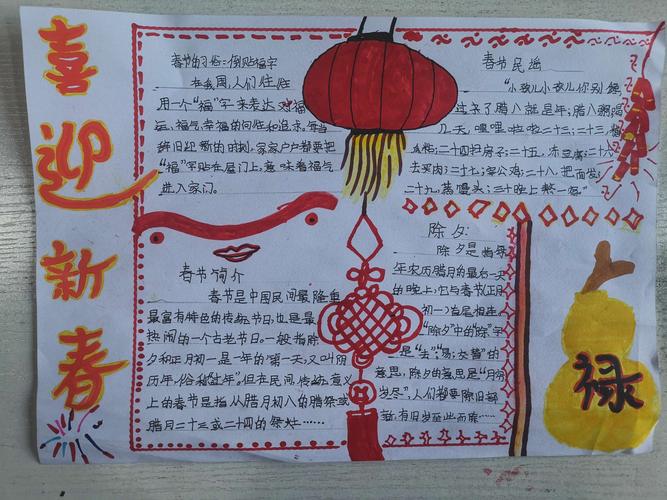 喜迎新春
春节的习俗:倒贴福字
在我国,人们往往
用一个"福"字来表达对福
运、福气、幸福的向往和追求。每当
辞旧迎新的时刻,家家户户都要把
"福"字贴在屋门上,意味着福气
进入家门。
春节民谣
"小孩儿小孩儿你别馋,
过了腊八就是年;腊八粥喝
几天,哩哩啦啦二十三;二十三糖
瓜粘;二十四扫房子;二十五,冻豆腐;二十六
去买肉;二十七,宰公鸡;二十八,把面发;
二十九,蒸馒头;三十晚上熬一宿。"
春节简介
春节是中国民间最隆重
最富有特色的传统节日,也是最
热闹的一个古老节日。一般指除
夕和正月初一,是一年的第一天,又叫阴
历年,俗称"过年"。但在民间,传统意义
上的春节是指从腊月初八的腊祭或
腊月二十三或二十四的祭灶……
除夕:
除夕是指每
年农历腊月的最后一天
的晚上,它与春节(正月
初一)首尾相连。
"除夕"中的"除"字
是"去;易;交替"的
意思,除夕的意思是"月穷
岁尽",人们都要除旧部
新,有旧岁至此而除……
禄